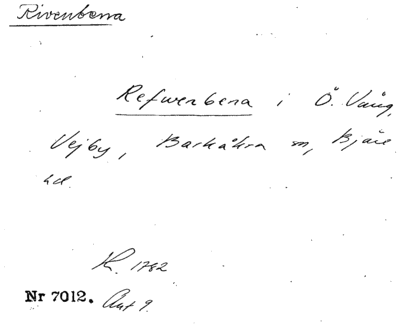 Rivenbena
Refwenbena i Ö. Vång,
Vejby, Barkåkra m, Bjäre
hd.
K. 1782
Nr 7012. Akt 9.